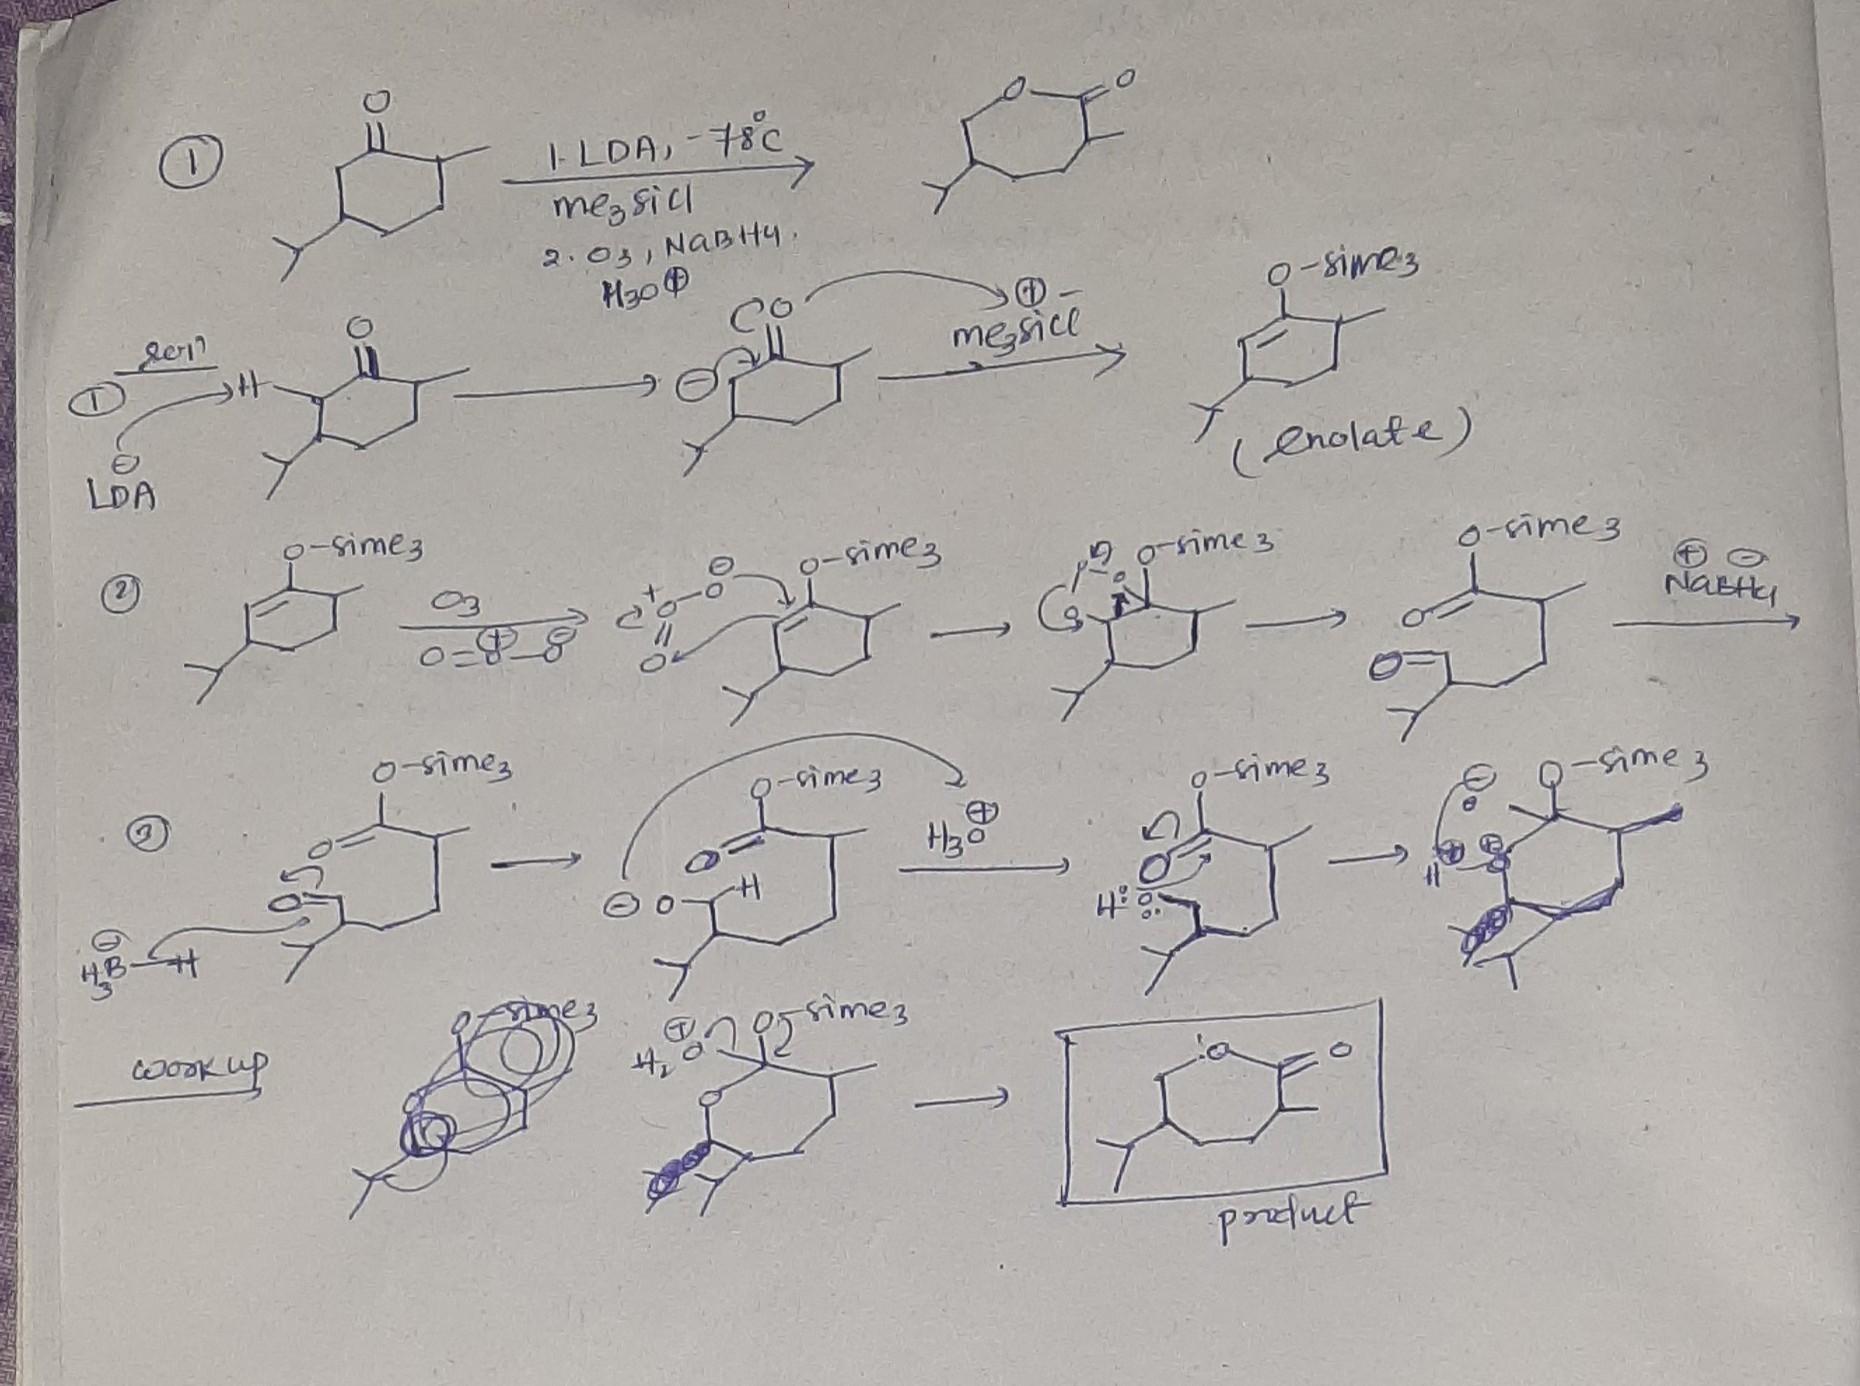 ① O 1. LDA, -78°C O O
me3sicl
2. O3, NaBH4.
H3O⊕
① O H ⊖ LDA
⊖ O ⊕ -
me3sicl
O-sime3
(enolate)
② O-sime3 O3
O=O⊕-O⊖
O-sime3
O-sime3
O-sime3 O O
⊕ ⊖
NaBH4
③ O-sime3 O O
⊖
H3B-H
O-sime3 O H ⊖ O
H3O⊕
O-sime3 O H:O:
⊖ O-sime3 H ⊕
workup
O-sime3
⊕ H2O O-sime3 O
O O
product